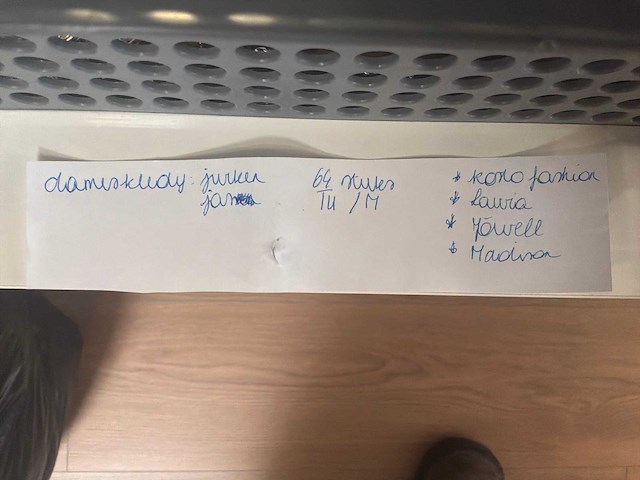 dameskledy: jurken 64 stuks * KOKO fashion
jas TU / M * Lawia
* Jowell
* Madison